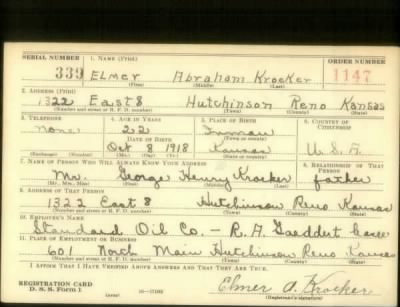 SERIAL NUMBER 1. NAME (Print) ORDER NUMBER
339 ELMER Abraham Krocker 1147
(First) (Middle) (Last)
2. ADDRESS (Print)
1322 East 8 Hutchinson Reno Kansas
(Number and street or R. F. D. number) (Town) (County) (State)
3. TELEPHONE 4. AGE IN YEARS 5. PLACE OF BIRTH 6. COUNTRY OF CITIZENSHIP
None 22 Inman
DATE OF BIRTH (Town or county)
Oct 8 1918 Kansas U.S.A.
(Exchange) (Number) (Mo.) (Day) (Yr.) (State or country)
7. NAME OF PERSON WHO WILL ALWAYS KNOW YOUR ADDRESS 8. RELATIONSHIP OF THAT PERSON
Mr. George Henry Krocker father
(Mr., Mrs., Miss) (First) (Middle) (Last)
9. ADDRESS OF THAT PERSON
1322 East 8 Hutchinson Reno Kansas
(Number and street or R. F. D. number) (Town) (County) (State)
10. EMPLOYER'S NAME
Standard Oil Co. — R. A. Gaeddert
11. PLACE OF EMPLOYMENT OR BUSINESS
601 North Main Hutchinson Reno Kansas
(Number and street or R. F. D. number) (Town) (County) (State)
I AFFIRM THAT I HAVE VERIFIED ABOVE ANSWERS AND THAT THEY ARE TRUE.
REGISTRATION CARD
D. S. S. Form 1
Elmer A. Krocker
(Registrant's signature)